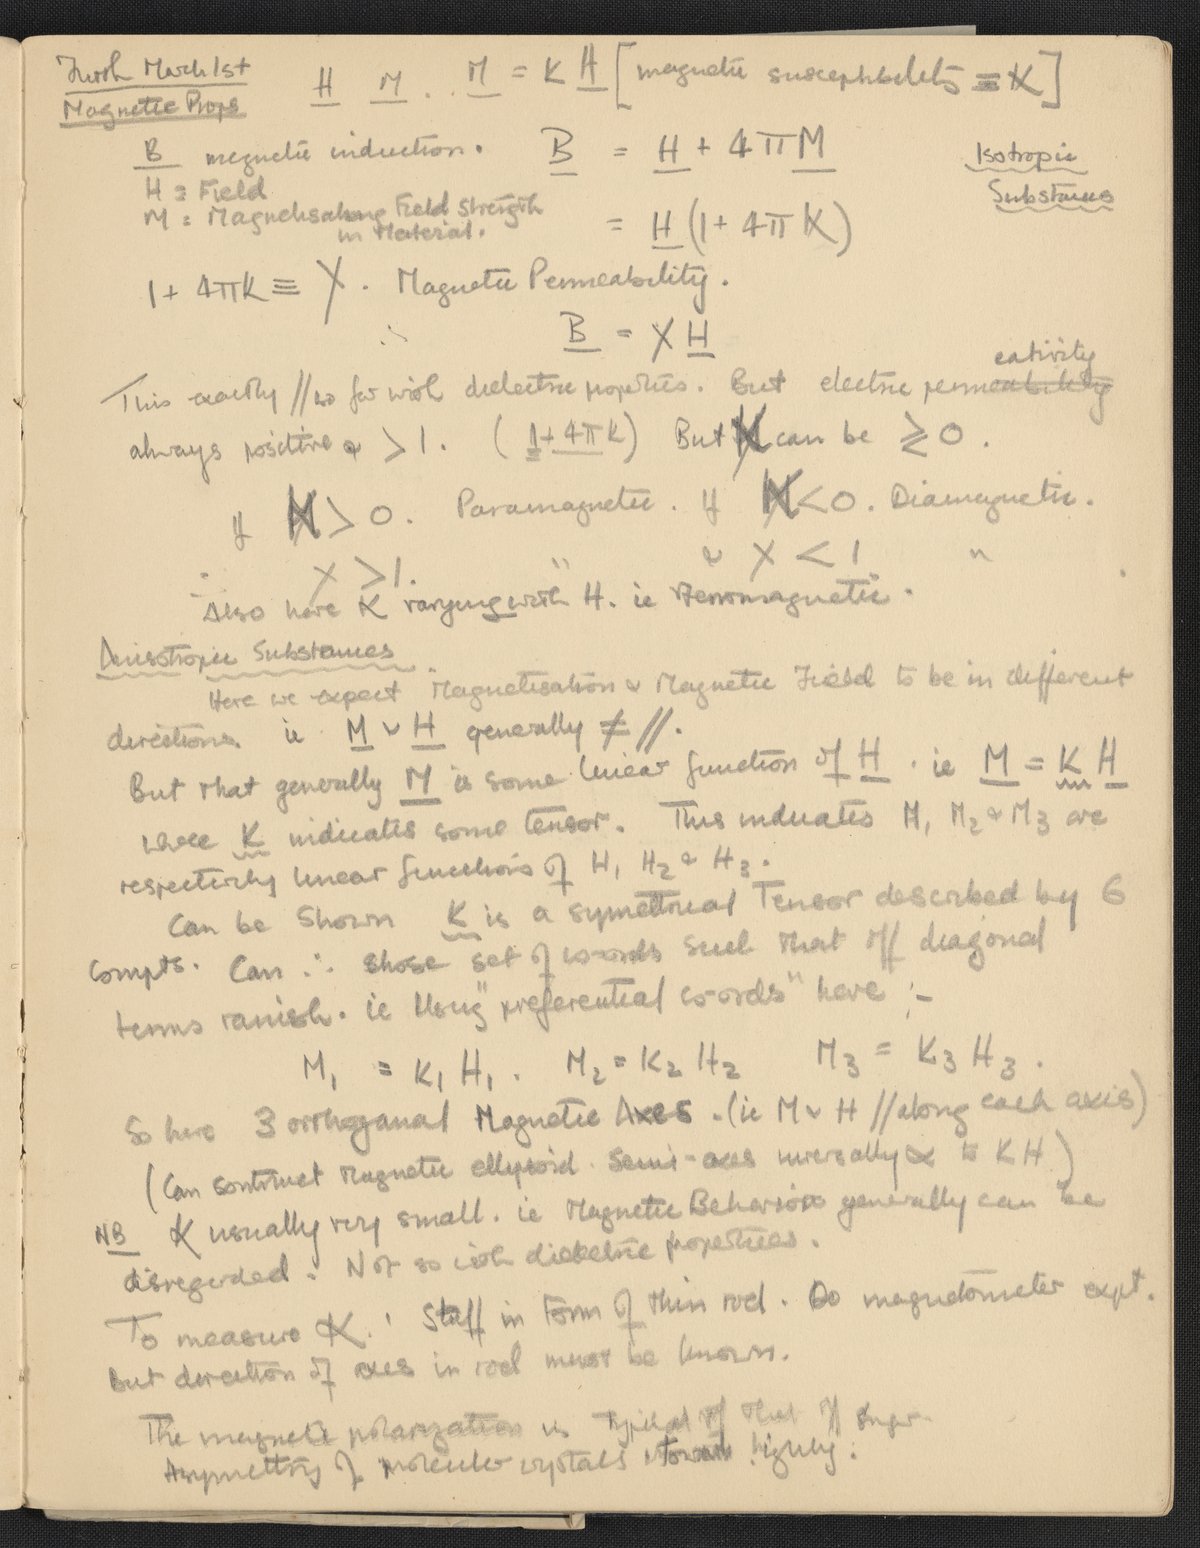 March 1st
Magnetic Props
H M . . M = K H [magnetic susceptibility ≡ K]
B magnetic induction. B = H + 4πM
Isotropic
Substances
H = Field
M = Magnetisating Field Strength
in Material.
= H (1 + 4πK)
1 + 4πK ≡ χ. Magnetic Permeability.
∴ B = χ H
eativity
This exactly // so far with dielectric properties. But electric permeability
always positive & > 1. (1 + 4πK) But K can be ≷ 0.
If K > 0. Paramagnetic. If K < 0. Diamagnetic.
∴ χ > 1. " & χ < 1 "
Also have K varying with H. ie Ferromagnetic.
Anisotropic Substances.
Here we expect Magnetisation & Magnetic Field to be in different
directions. ie M & H generally ≠ //.
But that generally M is some linear function of H. ie M = K H
where K indicates some tensor. This indicates M1 M2 & M3 are
respectively linear functions of H1 H2 & H3.
Can be shown K is a symettrical Tensor described by 6
compts. Can ∴ chose set of co-ords such that off diagonal
terms vanish. ie Using "preferential co-ords" have :-
M1 = K1 H1. M2 = K2 H2 M3 = K3 H3.
So have 3 orthoganal Magnetic Axes. (ie M & H // along each axis)
(Can contruct Magnetic ellipsoid. Semi-axes inversally ∝ to K H)
NB K usually very small. ie Magnetic Behaviour generally can be
disregarded. Not so with dielectric properties.
To measure K. Stuff in Form of thin rod. Do magnetometer expt.
But direction of axes in rod must be known.
The magnetic polarization is typical of that of
Asymettry of molecular crystals highly.